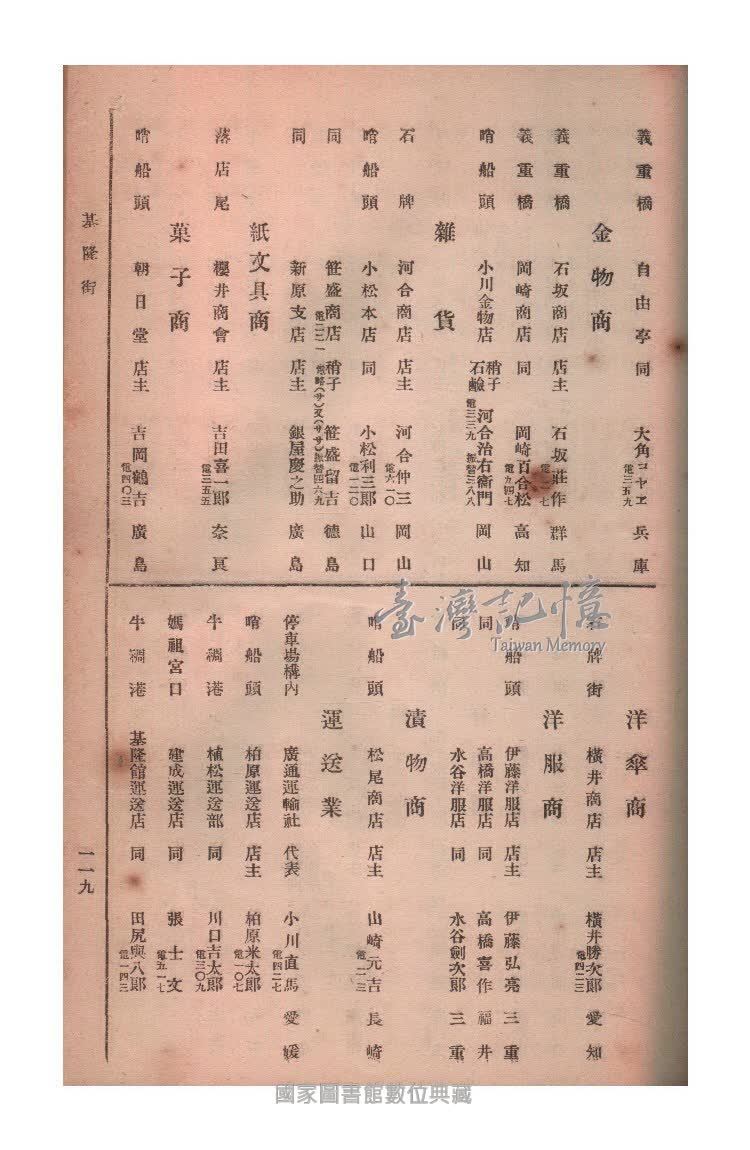 義重橋 自由亭 同 大角コヤヱ 電三五九 兵庫
金物商
義重橋 石坂商店 店主 石坂莊作 群馬
義重橋 岡崎商店 同 岡崎百合松 電九四七 高知
哨船頭 小川金物店 稍子 石鹼 電三三九 河合治右衞門 振替三八八 岡山
雜貨
石牌 河合商店 店主 河合仲三 電六二〇 岡山
哨船頭 小松本店 同 小松利三郎 電一二〇 山口
同 笹盛商店 電二二一 稍子 電略(サ)又(サヽ) 笹盛留吉 振替四六九 德島
同 新原支店 店主 銀屋慶之助 廣島
紙文具商
落店尾 櫻井商會 店主 吉田喜一郎 電三五五 奈良
菓子商
哨船頭 朝日堂 店主 吉岡鶴吉 電四〇三 廣島
洋傘商
石牌街 橫井商店 店主 橫井勝次郎 電四二三 愛知
洋服商
哨船頭 伊藤洋服店 店主 伊藤弘亮 三重
同 高橋洋服店 同 高橋喜作 福井
同 水谷洋服店 同 水谷劍次郎 三重
漬物商
哨船頭 松尾商店 店主 山崎元吉 電二一三 長崎
運送業
停車場構內 廣通運輸社 代表 小川直馬 電四二七 愛媛
哨船頭 柏原運送店 店主 柏原米太郎 電一〇七
牛稠港 植松運送部 同 川口吉太郎 電三〇九
媽祖宮口 建成運送店 同 張士文 電五一七
牛稠港 基隆館運送店 同 田尻與八郎 電一四三
基隆街
一一九
臺灣記憶
Taiwan Memory
國家圖書館數位典藏